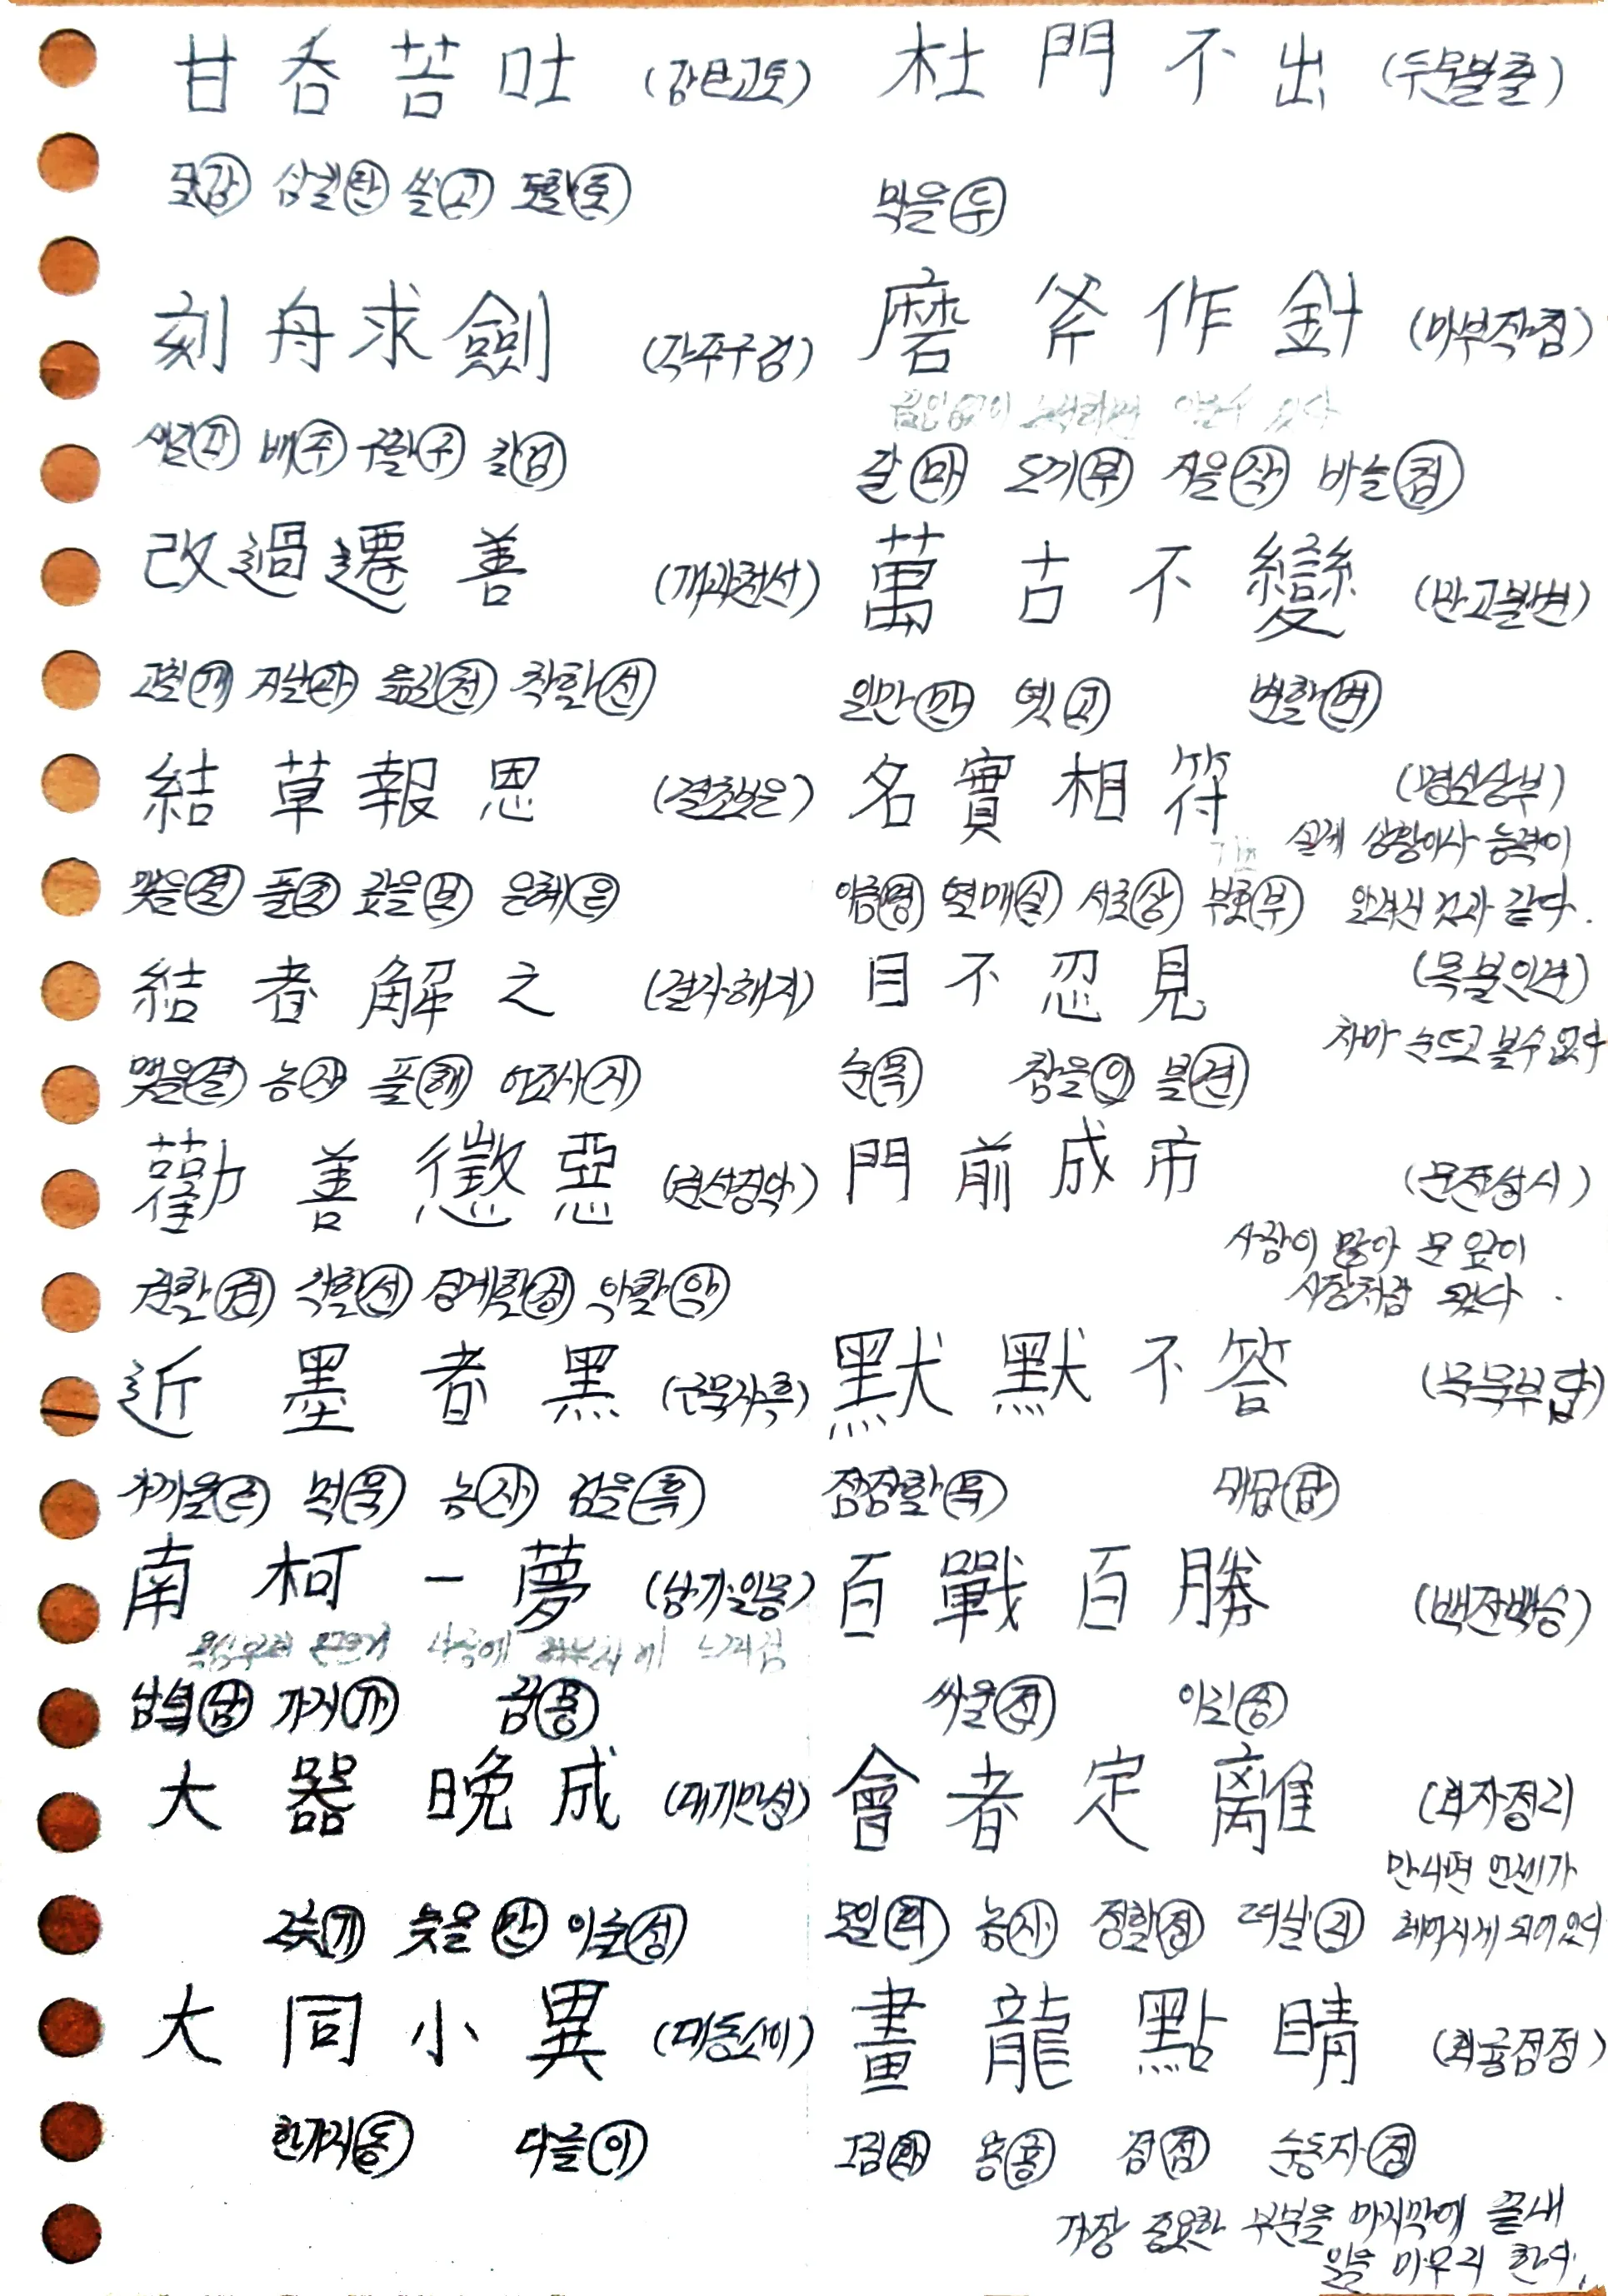 甘呑苦吐 (감탄고토)
달감 삼킬탄 쓸고 토할토
刻舟求劍 (각주구검)
새길각 배주 구할구 칼검
改過遷善 (개과천선)
고칠개 지날과 옮길천 착할선
結草報恩 (결초보은)
맺을결 풀초 갚을보 은혜은
結者解之 (결자해지)
맺을결 놈자 풀해 어조사지
勸善懲惡 (권선징악)
권할권 착할선 징계할징 악할악
近墨者黑 (근묵자흑)
가까울근 먹묵 놈자 검을흑
南柯一夢 (남가일몽)
남녘남 가지가 꿈몽
大器晩成 (대기만성)
그릇기 늦을만 이룰성
大同小異 (대동소이)
한가지동 다를이
杜門不出 (두문불출)
막을두
磨斧作針 (마부작침)
끊임없이 노력하면 이룰수 있다
갈마 도끼부 지을작 바늘침
萬古不變 (만고불변)
일만만 옛고 변할변
名實相符 (명실상부)
실제 상황이나 능력이
이름명 열매실 서로상 부호부 알려진 것과 같다.
目不忍見 (목불인견)
차마 눈뜨고 볼수 없다
눈목 참을인 볼견
門前成市 (문전성시)
사람이 많아 문 앞이
시장처럼 됐다.
默默不答 (묵묵부답)
잠잠할묵 대답답
百戰百勝 (백전백승)
싸울전 이길승
會者定離 (회자정리
만나면 언젠가
모일회 놈자 정할정 떠날리 헤어지게 되어있다
畫龍點睛 (화룡점정)
그림화 용룡 점점 눈동자정
가장 중요한 부분을 마지막에 끝내
일을 마무리 한다.